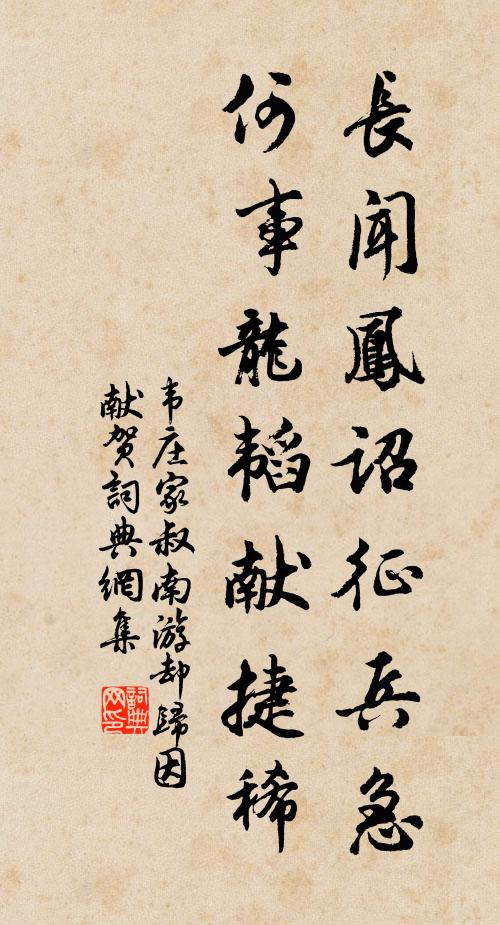 長聞鳳詔征兵急
何事龍韜献捷稀
韦庄家叔南游却歸因
献贺詞典網集
詞典网印